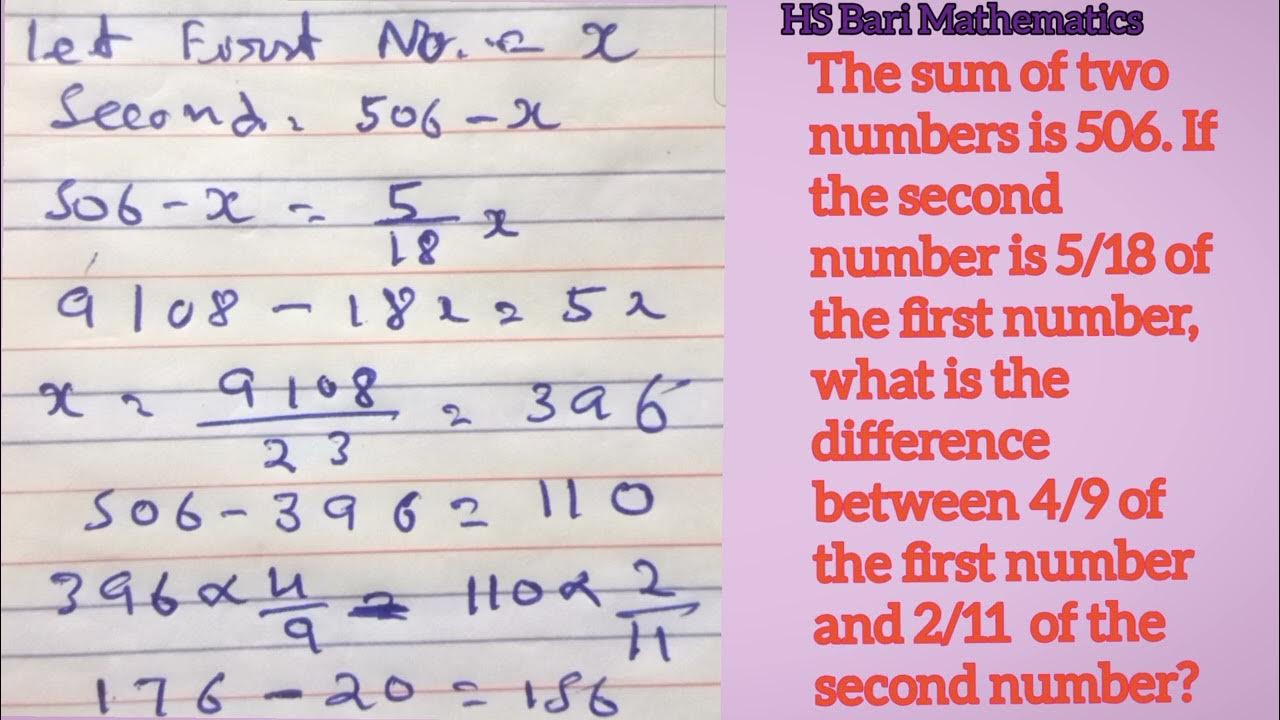 Let First No. = x
Second = 506 - x
506 - x = 5/18 x
9108 - 18x = 5x
x = 9108/23 = 396
506 - 396 = 110
396 × 4/9 - 110 × 2/11
176 - 20 = 156
HS Bari Mathematics
The sum of two
numbers is 506. If
the second
number is 5/18 of
the first number,
what is the
difference
between 4/9 of
the first number
and 2/11 of the
second number?